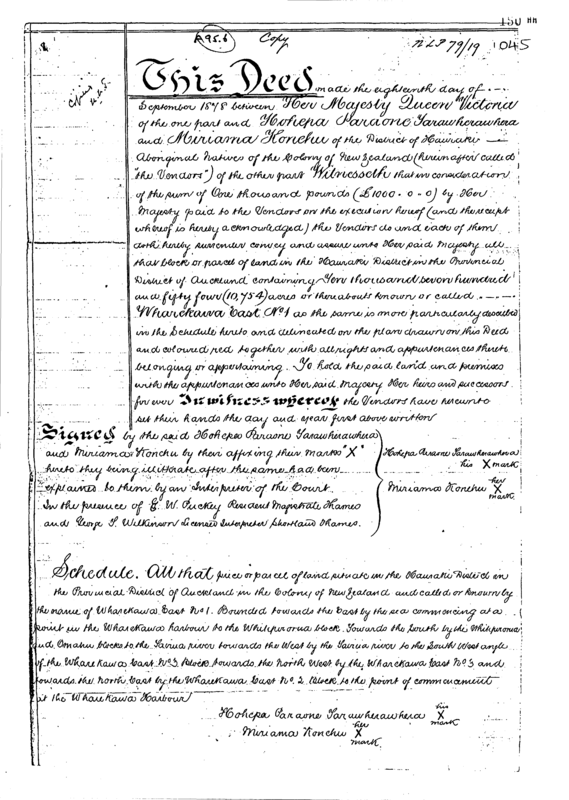 150 HH
R95.6 Copy NLP 79/19 1045
This Deed made the eighteenth day of
September 1878 between Her Majesty Queen Victoria
of the one part and Hohepa Paraone Tarawherawhera
and Miriama Konehu of the District of Hauraki
Aboriginal Natives of the Colony of New Zealand (hereinafter called
"the Vendors") of the other part Witnesseth that in consideration
of the sum of One thousand pounds (£1000-0-0) by Her
Majesty paid to the Vendors on the execution hereof (and the receipt
whereof is hereby acknowledged) the Vendors do and each of them
doth hereby surrender convey and assure unto Her said Majesty all
that block or parcel of land in the Hauraki District in the Provincial
District of Auckland containing Ten thousand seven hundred
and fifty four (10,754) acres or thereabouts known or called
Wharekawa East No 1 as the same is more particularly described
in the Schedule hereto and delineated on the plan drawn on this Deed
and coloured red together with all rights and appurtenances thereto
belonging or appertaining. To hold the said land and premises
with the appurtenances unto Her said Majesty Her heirs and successors
for ever In witness whereof the Vendors have hereunto
set their hands the day and year first above written
Signed by the said Hohepa Paraone Tarawherawhera
and Miriama Konehu by their affixing their marks "X"
hereto they being illiterate after the same had been
explained to them by an Interpreter of the Court.
In the presence of E. W. Puckey Resident Magistrate Thames
and George T. Wilkinson Licensed Interpreter Shortland Thames.
Hohepa Paraone Tarawherawhera
his X mark
Miriama Konehu her X mark
Schedule. All that piece or parcel of land situate in the Hauraki District in
the Provincial District of Auckland in the Colony of New Zealand and called or known by
the name of Wharekawa East No 1. Bounded towards the East by the sea commencing at a
point in the Wharekawa harbour to the Whitipirorua block. Towards the South by the Whitipirorua
and Omahu blocks to the Tairua river towards the West by the Tairua river to the South West angle
of the Wharekawa East No 3 Block towards the North West by the Wharekawa East No 3 and
towards the North East by the Wharekawa East No. 2 Block to the point of commencement
at the Wharekawa Harbour
Hohepa Paraone Tarawherawhera his X mark
Miriama Konehu her X mark